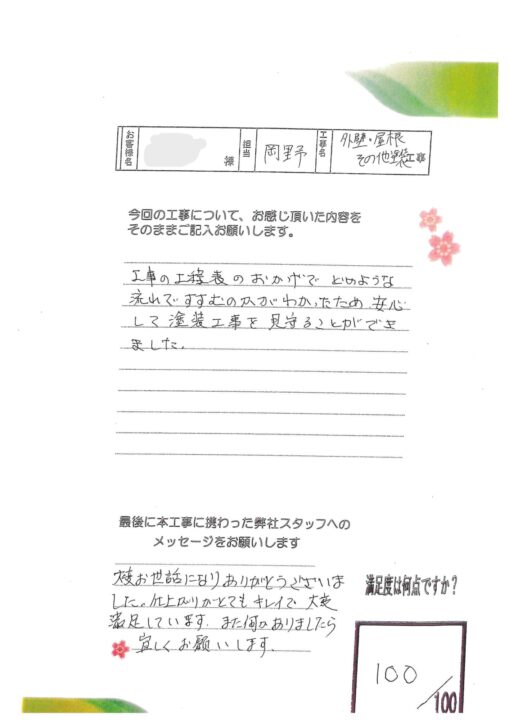 お客様名 様 担当 岡野 工事名 外壁・屋根
その他塗装工事
今回の工事について、お感じ頂いた内容を
そのままご記入お願いします。
工事の工程表のおかげで どのような
流れですすむのかがわかったため 安心
して塗装工事を見守ることができ
ました。
最後に本工事に携わった弊社スタッフへの
メッセージをお願いします
大変お世話になりありがとうございま
した。仕上がりがとてもキレイで 大変
満足しています。また何かありましたら
宜しくお願いします。
満足度は何点ですか?
100
/100